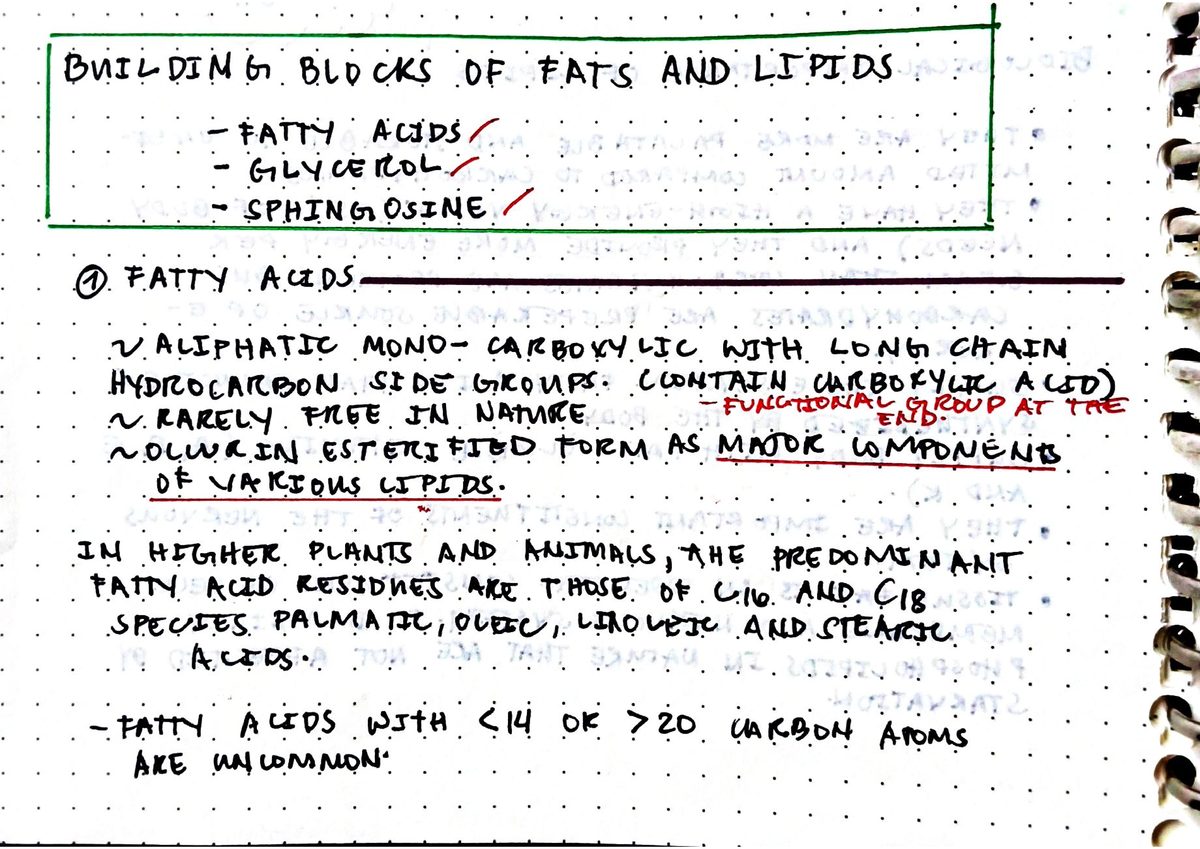 BUILDING BLOCKS OF FATS AND LIPIDS
- FATTY ACIDS
- GLYCEROL
- SPHINGOSINE
① FATTY ACIDS
~ ALIPHATIC MONO- CARBOXYLIC WITH LONG CHAIN
HYDROCARBON SIDE GROUPS. (CONTAIN CARBOXYLIC ACID)
- FUNCTIONAL GROUP AT THE
END.
~ RARELY FREE IN NATURE
~ OCCUR IN ESTERIFIED FORM AS MAJOR COMPONENTS
OF VARIOUS LIPIDS.
IN HIGHER PLANTS AND ANIMALS, THE PREDOMINANT
FATTY ACID RESIDUES ARE THOSE OF C16 AND C18
SPECIES PALMATIC, OLEIC, LINOLEIC AND STEARIC
ACIDS.
- FATTY ACIDS WITH <14 OR >20 CARBON ATOMS
ARE UNCOMMON.